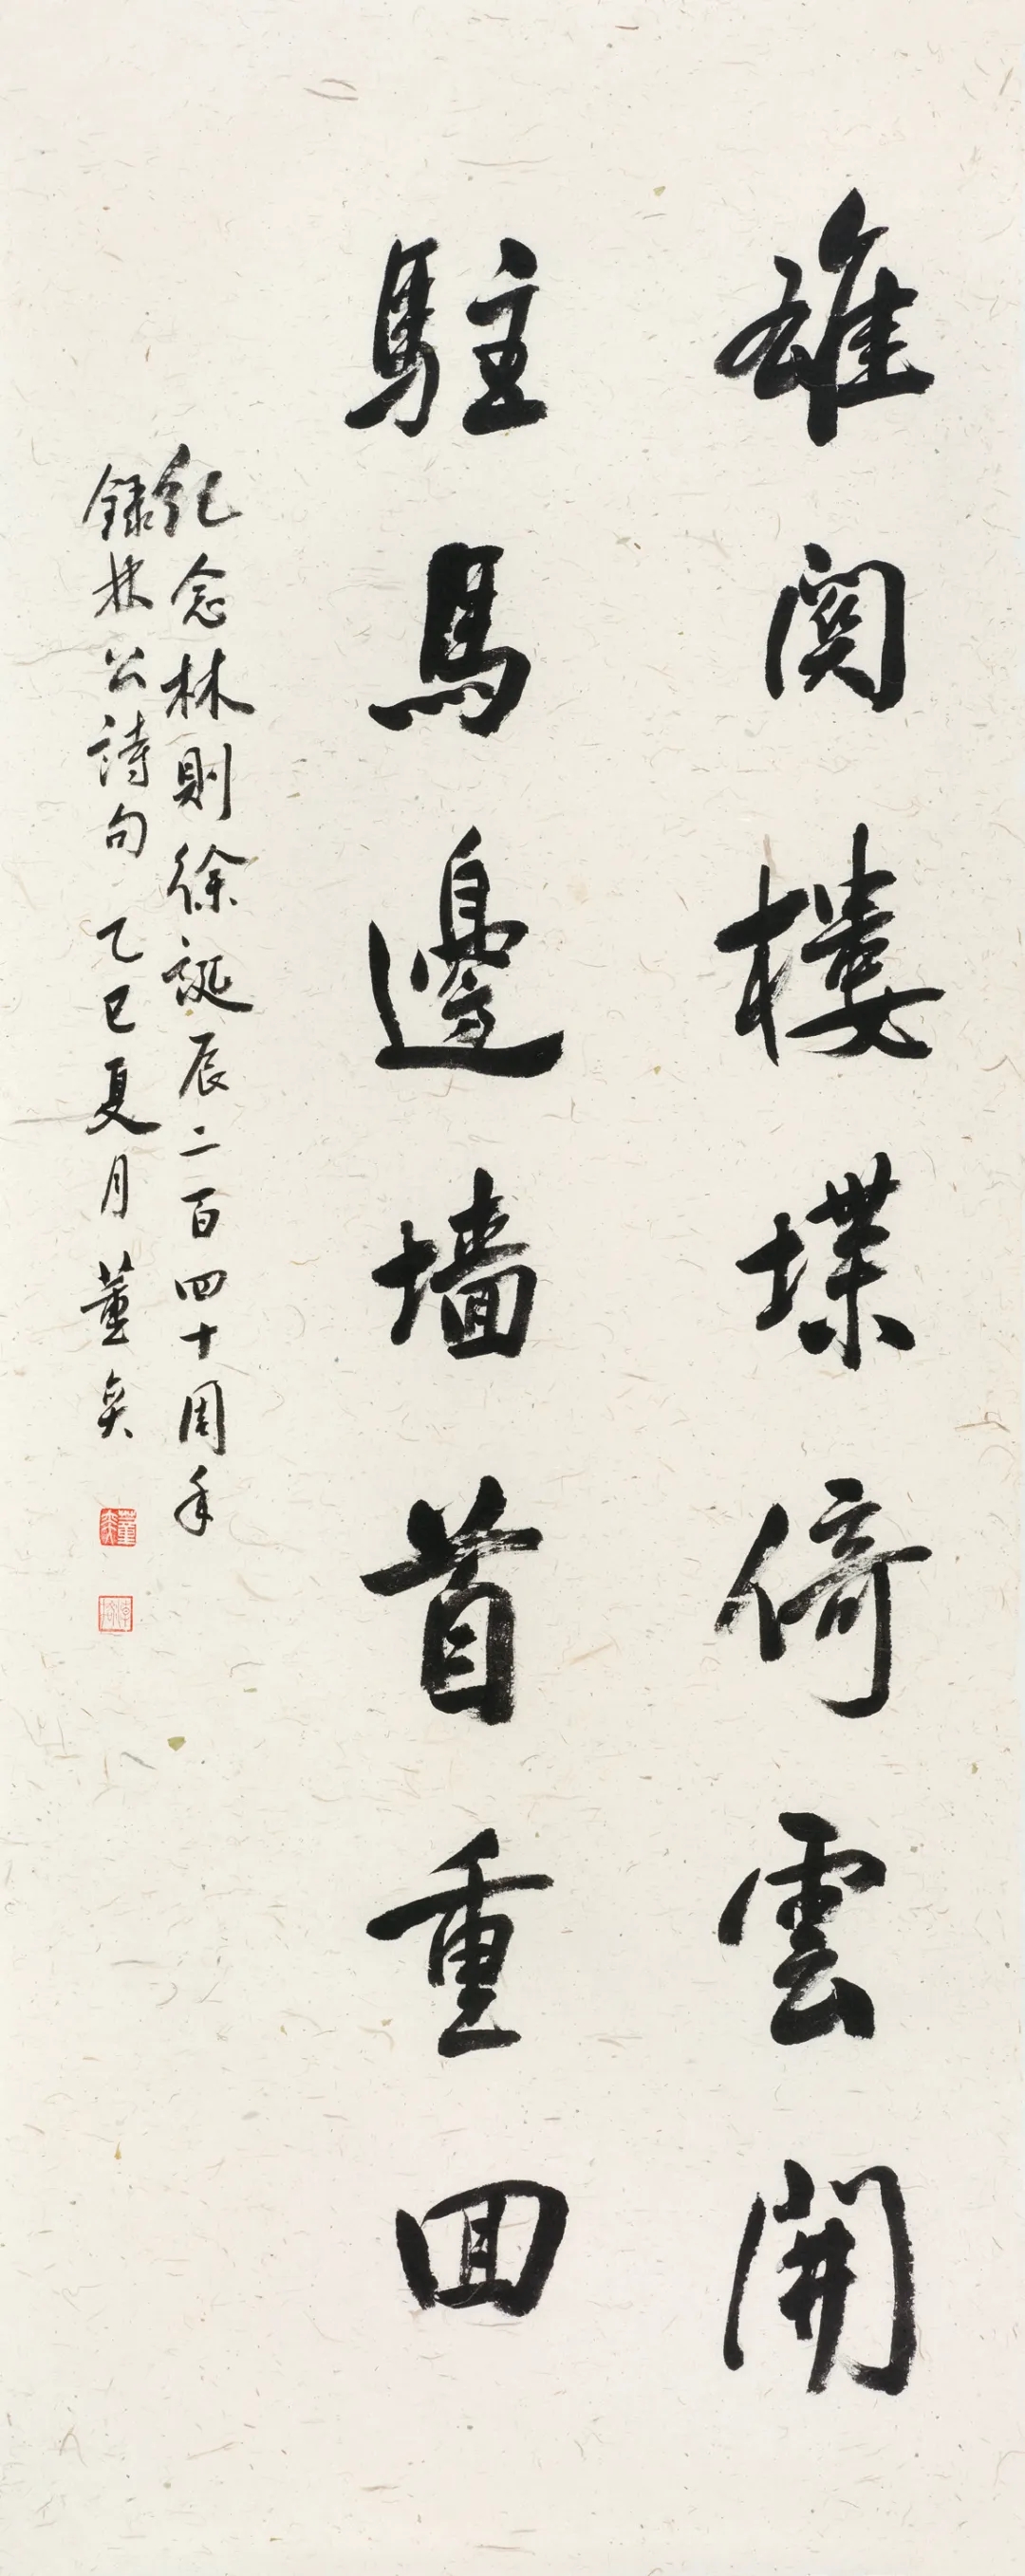 雄関樓堞倚雲開
駐馬邊墙首重回
紀念林則徐誕辰二百四十周年
録林公詩句 乙巳夏月 董奕
董奕